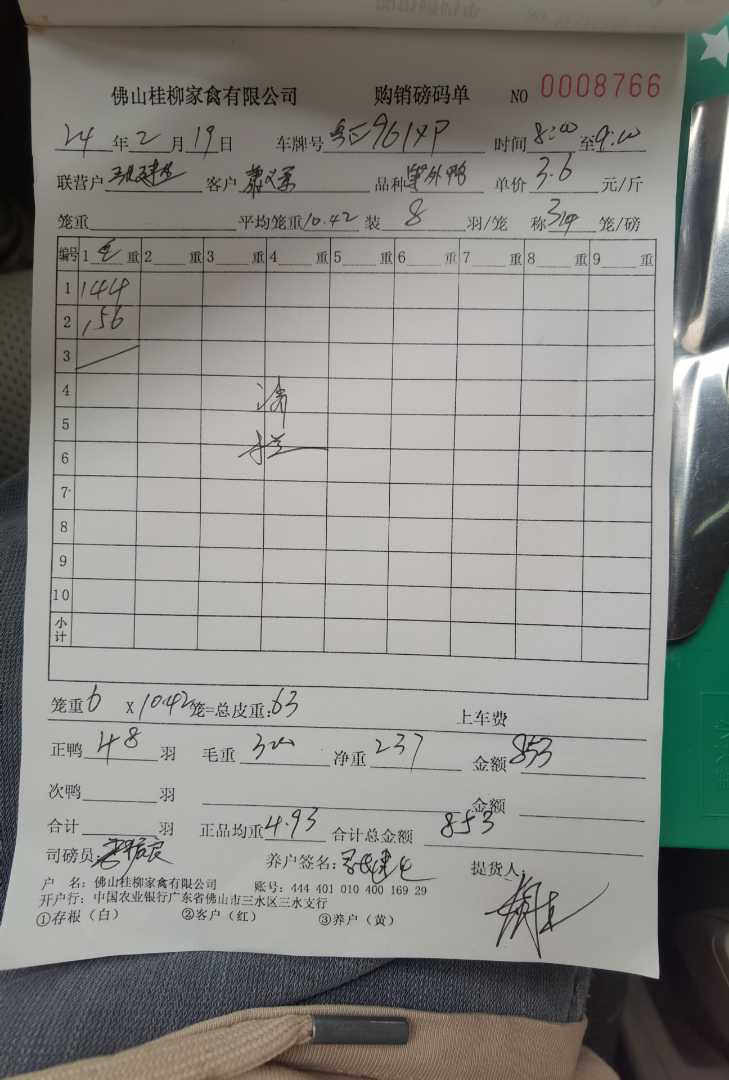 佛山桂柳家禽有限公司 购销磅码单 NO 0008766
24年2月19日 车牌号 时间8:00至9:00
联营户 客户 品种 单价3.6元/斤
笼重 平均笼重10.42装8羽/笼 称 笼/磅
编号 1毛重 2 重 3 重 4 重 5 重 6 重 7 重 8 重 9 重
1 144
2 156
3
4 清
5
6 栏
7
8
9
10
小计
笼重6 X 10.42笼=总皮重:63 上车费
正鸭48羽 毛重300 净重237 金额853
次鸭 羽 金额
合计 羽 正品均重4.93 合计总金额853
司磅员: 养户签名: 提货人:
户 名: 佛山桂柳家禽有限公司 账号: 444 401 010 400 169 29
开户行: 中国农业银行广东省佛山市三水区三水支行
①存根（白） ②客户（红） ③养户（黄）